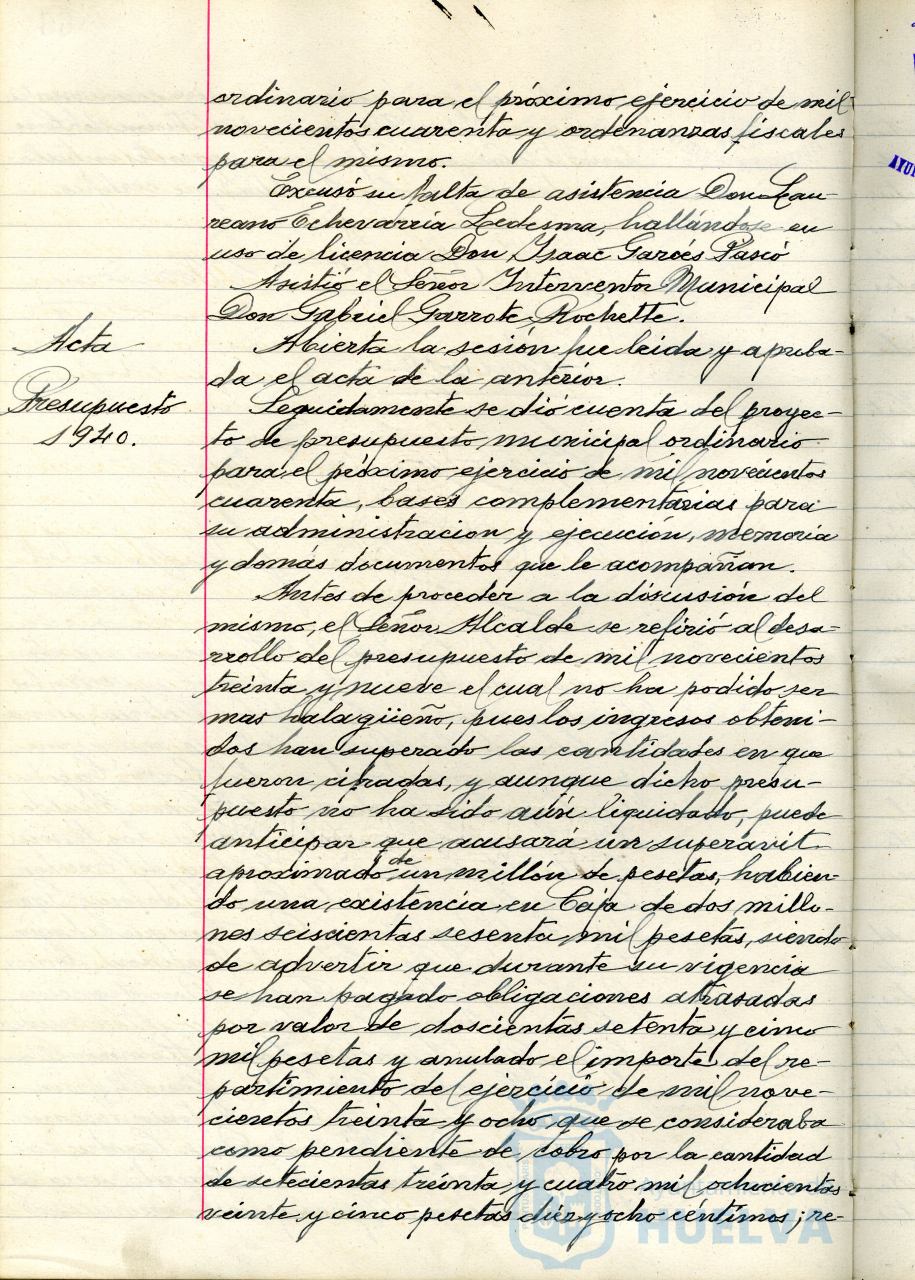 ordinario para el próximo ejercicio de mil
novecientos cuarenta y ordenanzas fiscales
para el mismo.
Excusó su falta de asistencia Don Lau-
reano Echevarría Ledesma, hallándose en
uso de licencia Don Isaac Garcés Pascó
Asistió el Señor Interventor Municipal
Don Gabriel Garrote Rochette.
Acta
Abierta la sesión fue leida y aproba-
da el acta de la anterior.
Presupuesto
1940.
Seguidamente se dió cuenta del proyec-
to de presupuesto municipal ordinario
para el próximo ejercicio de mil novecientos
cuarenta, bases complementarias para
su administracion y ejecución, memoria
y demás documentos que le acompañan.
Antes de proceder a la discusión del
mismo, el Señor Alcalde se refirió al desa-
rrollo del presupuesto de mil novecientos
treinta y nueve el cual no ha podido ser
mas halagüeño, pues los ingresos obteni-
dos han superado las cantidades en que
fueron cifradas, y aunque dicho presu-
puesto no ha sido aún liquidado, puede
anticipar que acusará un superavit
aproximado de un millón de pesetas, habien-
do una existencia en Caja de dos millo-
nes seiscientas sesenta mil pesetas, siendo
de advertir que durante su vigencia
se han pagado obligaciones atrasadas
por valor de doscientas setenta y cinco
mil pesetas y anulado el importe del re-
partimiento del ejercicio de mil nove-
cientos treinta y ocho que se consideraba
como pendiente de cobro por la cantidad
de setecientas treinta y cuatro mil ochocientas
veinte y cinco pesetas diez y ocho centimos; re-
Ayuntamiento de
HUELVA